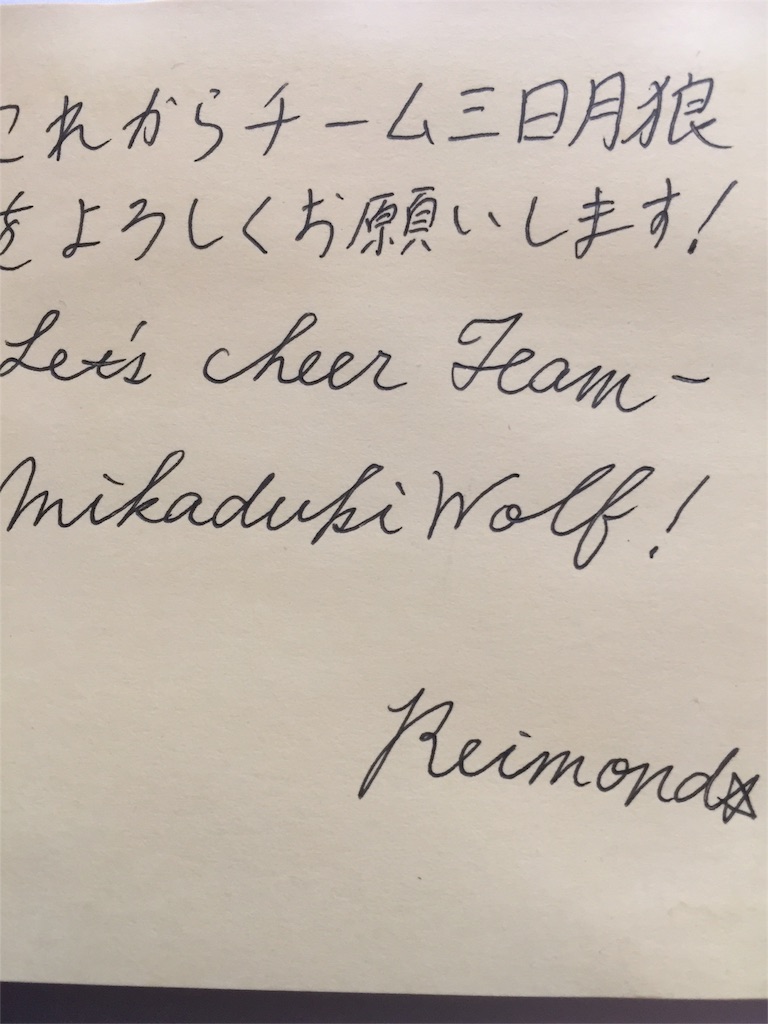 これからチーム三日月狼
をよろしくお願いします!
Let's cheer Team-
Mikaduki Wolf!
Reimond☆